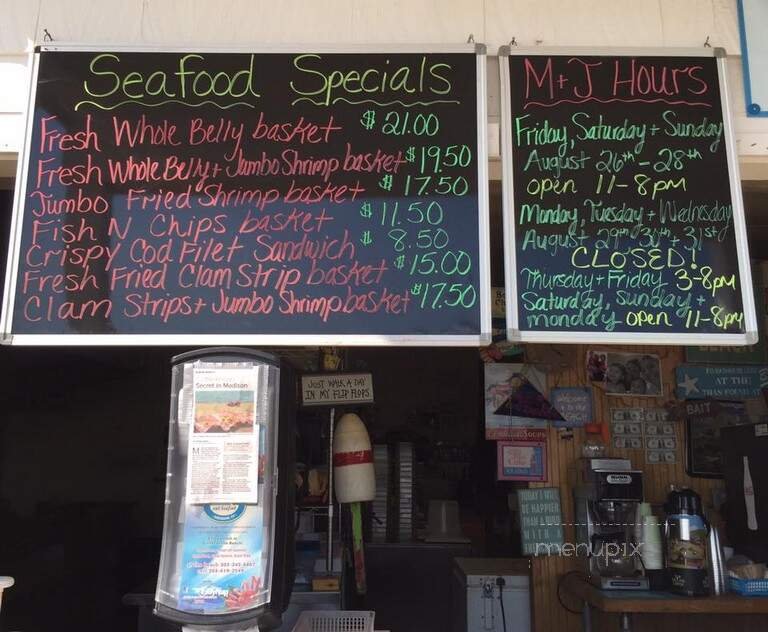 Seafood Specials
Fresh Whole Belly basket $21.00
Fresh Whole Belly + Jumbo Shrimp basket $19.50
Jumbo Fried Shrimp basket $17.50
Fish N Chips basket $11.50
Crispy Cod Filet Sandwich $8.50
Fresh Fried Clam Strip basket $15.00
Clam Strips + Jumbo Shrimp basket $17.50
M+J Hours
Friday, Saturday + Sunday
August 26th - 28th
open 11-8pm
Monday, Tuesday + Wednesday
August 29th 30th + 31st
CLOSED!
Thursday + Friday 3-8pm
Saturday, Sunday +
monday open 11-8pm
Secret in Madison
JUST WALK A DAY
IN MY FLIP FLOPS
BEACH
AT THE
BAIT
TODAY I WILL
BE HAPPIER
THAN A BIRD
WITH A
menupix